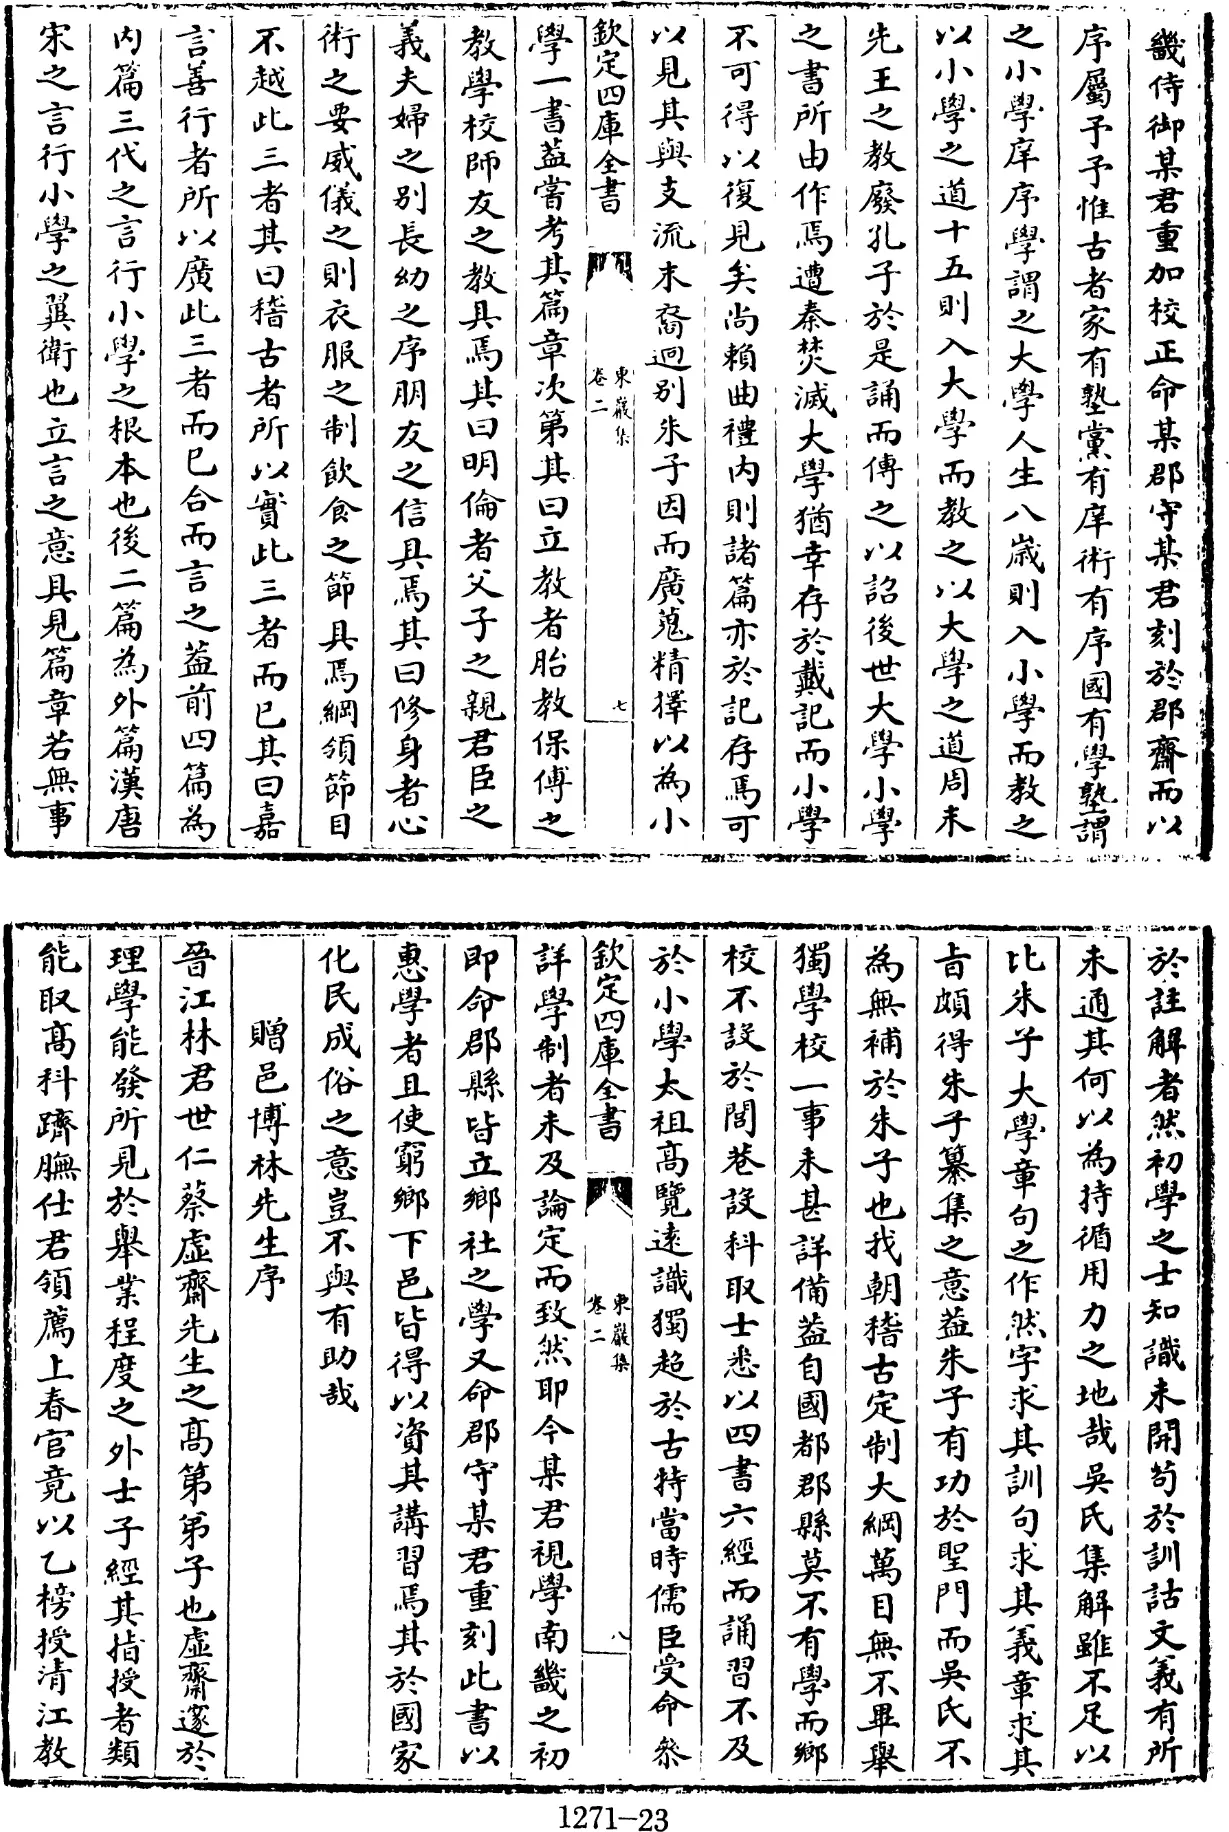 畿侍御某君重加校正命某郡守某君刻於郡齋而以
序屬予予惟古者家有塾黨有庠術有序國有學塾謂
之小學庠序學謂之大學人生八歲則入小學而教之
以小學之道十五則入大學而教之以大學之道周末
先王之教廢孔子於是誦而傳之以詔後世大學小學
之書所由作焉遭秦焚滅大學猶幸存於戴記而小學
不可得以復見矣尚賴曲禮內則諸篇亦於記存焉可
以見其與支流末裔逈別朱子因而廣蒐精擇以為小
欽定四庫全書
東巖集
卷二
七
學一書蓋嘗考其篇章次第其曰立教者胎教保傅之
教學校師友之教具焉其曰明倫者父子之親君臣之
義夫婦之別長幼之序朋友之信具焉其曰修身者心
術之要威儀之則衣服之制飲食之節具焉綱領節目
不越此三者其曰稽古者所以實此三者而已其曰嘉
言善行者所以廣此三者而已合而言之蓋前四篇為
內篇三代之言行小學之根本也後二篇為外篇漢唐
宋之言行小學之翼衛也立言之意具見篇章若無事
於註解者然初學之士知識未開茍於訓詁文義有所
未通其何以為持循用力之地哉吳氏集解雖不足以
比朱子大學章句之作然字求其訓句求其義章求其
㫖頗得朱子纂集之意蓋朱子有功於聖門而吳氏不
為無補於朱子也我朝稽古定制大綱萬目無不畢舉
獨學校一事未甚詳備蓋自國都郡縣莫不有學而鄉
校不設於閭巷設科取士悉以四書六經而誦習不及
於小學太祖高覽遠識獨超於古特當時儒臣受命叅
欽定四庫全書
東巖集
卷二
八
詳學制者未及論定而致然耶今某君視學南畿之初
即命郡縣皆立鄉社之學又命郡守某君重刻此書以
惠學者且使窮鄉下邑皆得以資其講習焉其於國家
化民成俗之意豈不與有助哉
贈邑博林先生序
晉江林君世仁蔡虛齋先生之高第弟子也虛齋邃於
理學能發所見於舉業程度之外士子經其指授者類
能取高科躋膴仕君領薦上春官竟以乙榜授清江教
1271—23